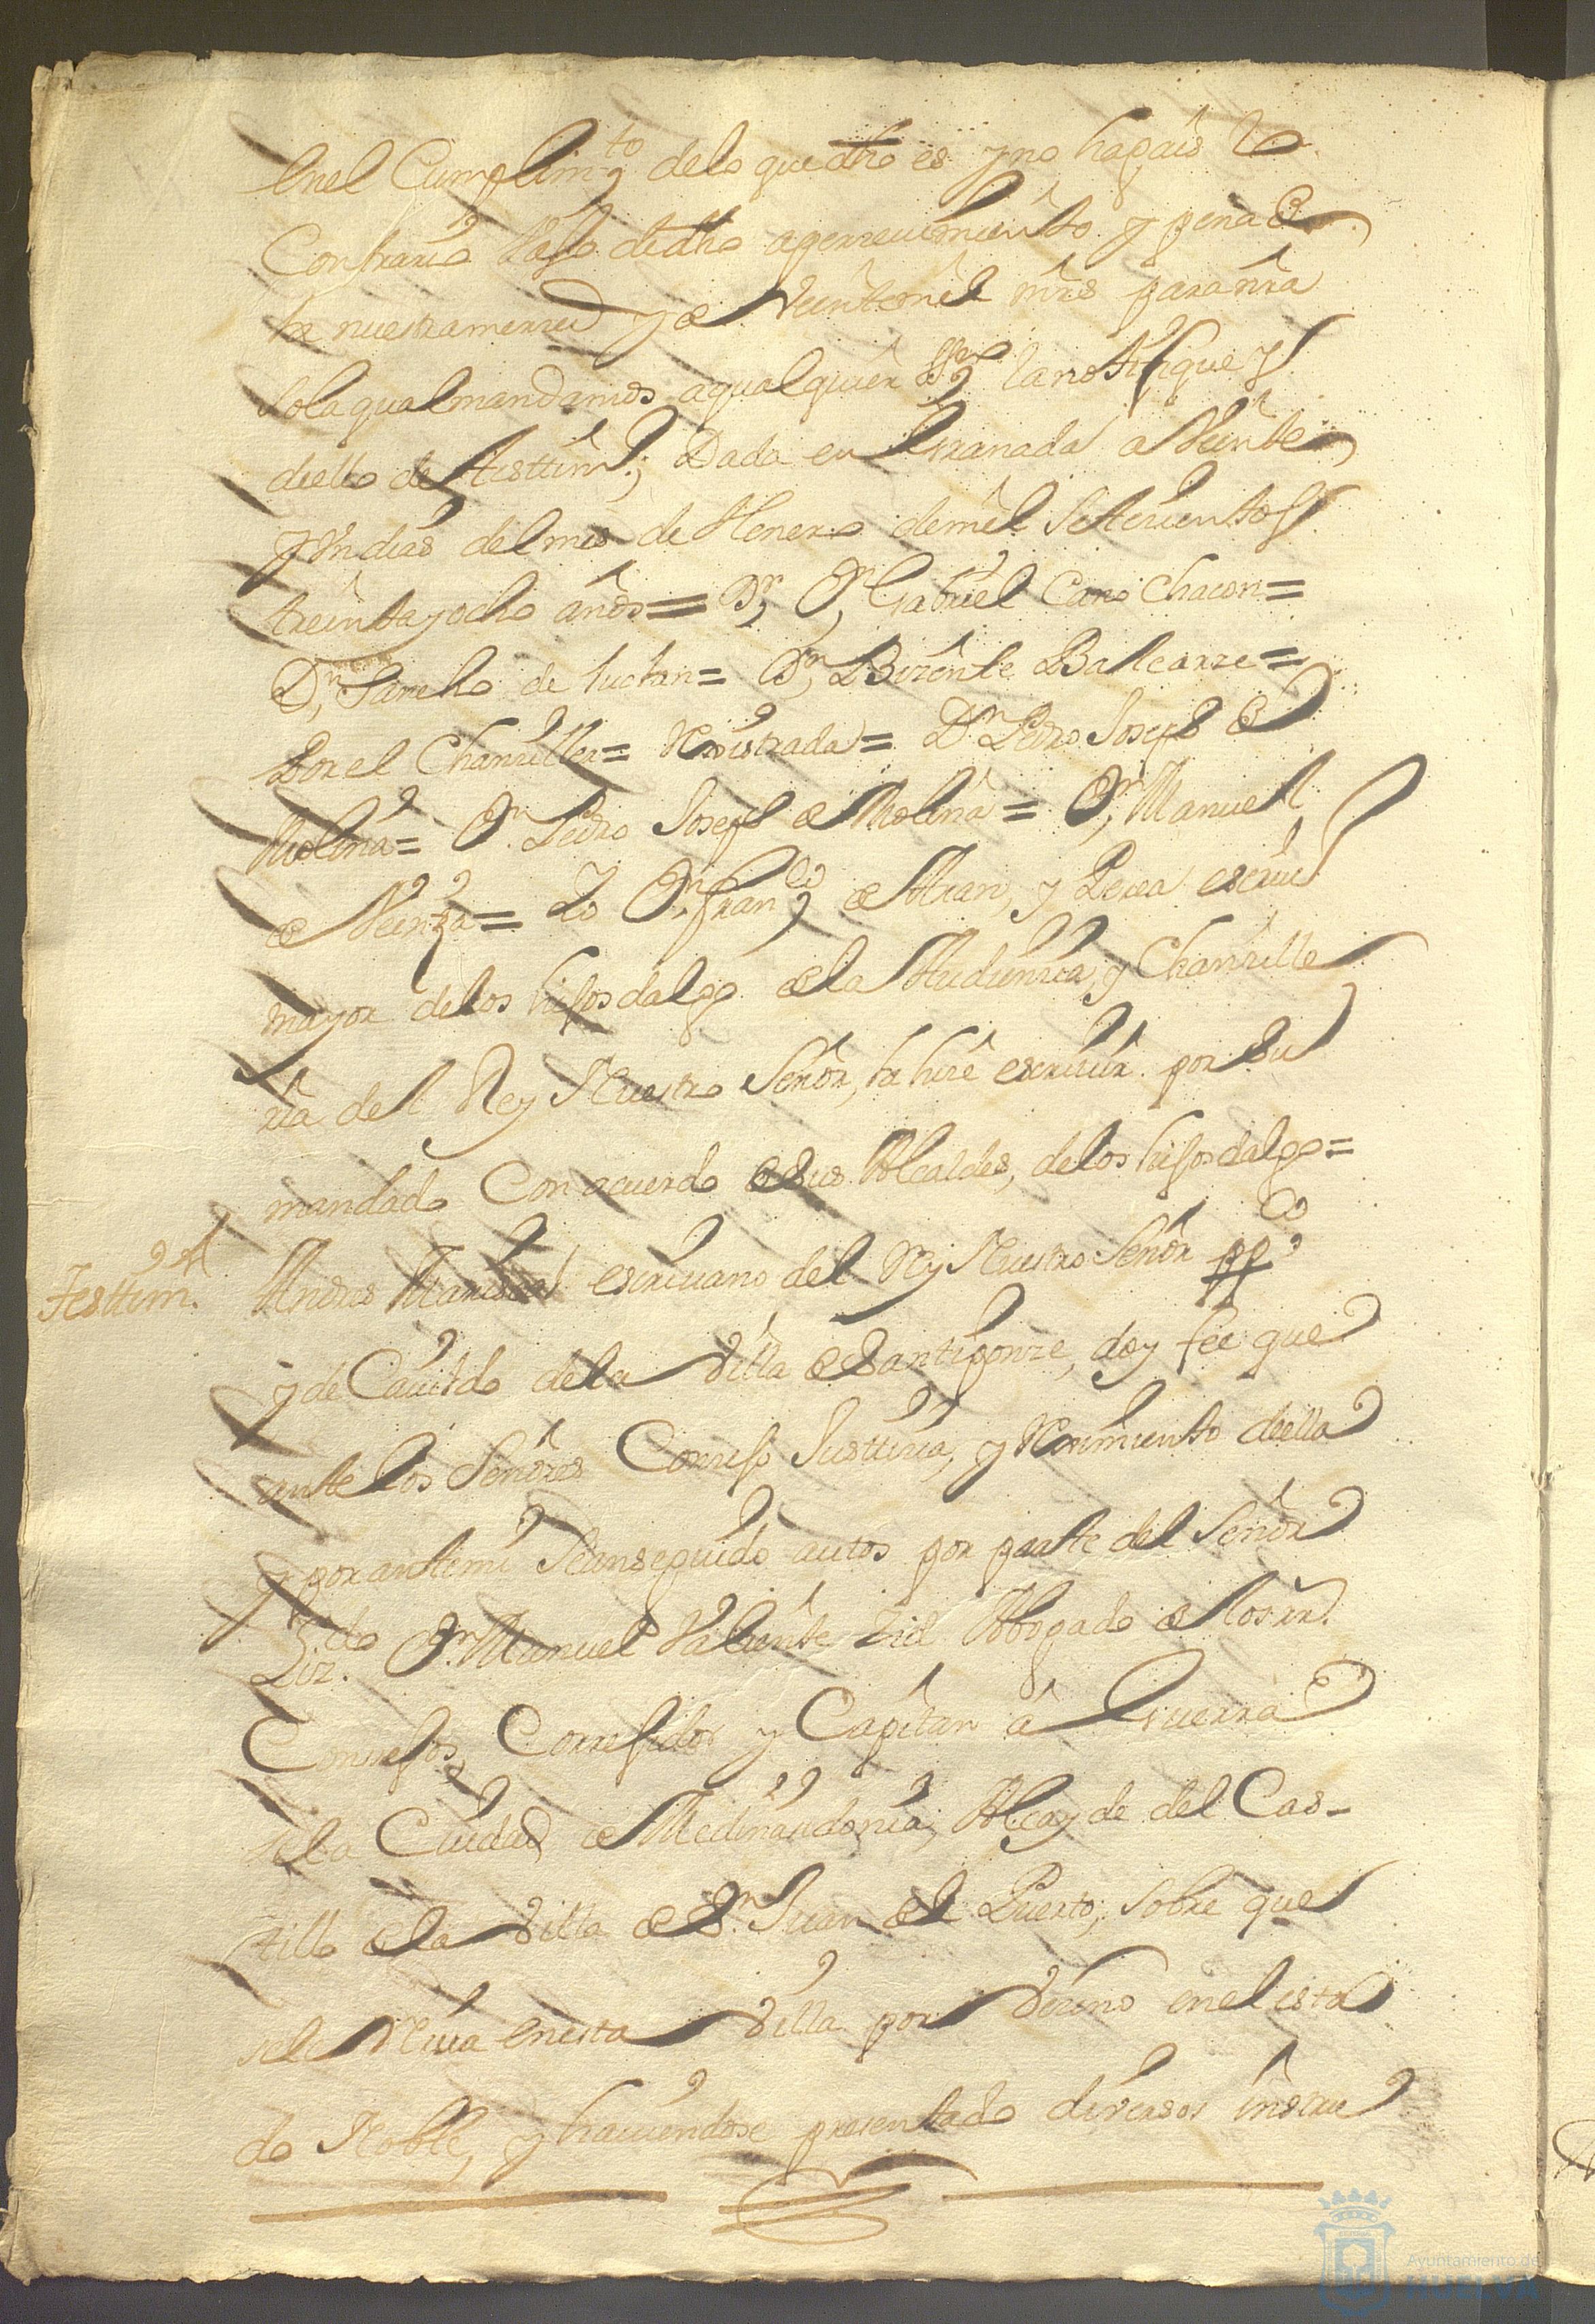 enel Cumplim.to delo que dho es y no hagais lo
Contrario vajo de dho apercevimiento y pena de
la nuestra merced y de Veintemil mrs para nra
so la qual mandamos a qualquier ssno la notifique y
deello de testtim.o; Dada en Granada a Veinte
y Un dias del mes de Henero de mil Setecientos
treinta y ocho años = Dn, Dn, Gabriel Cano Chacon =
Dn, Sancho de = Dn, Bizente Balcarze =
Por el Chanziller = Rexistrada = Dn Pedro Joseph de
Molina = Dn Pedro Joseph de Molina = Dn, Manuel
de = Yo Dn, Franco de y Perea escriu
mayor delos hijosdalgo dela Audienzia, y Chanzille
ria del Rey Nuestro Señor, la hize escriuir por su
mandado Con acuerdo de sus Alcaldes, delos hijosdalgo =
Testtim.o
Andres escriuano del Rey Nuestro Señor ppco
y de Cauildo dela Villa de Santiponze, doy fee que
ante los Señores Consejo Justtizia, y Reximiento deella
y por antemi Seanseguido autos por parte del Señor
Liz.do Dn Manuel Valiente Abogado de los rr.
Consejos, Correjidor y Capitan â Guerra
dela Ciudad de Medinasidonia, Alcayde del Cas-
tillo dela Villa de Sn Juan del Puerto; sobre que
sele Reciua enesta Villa por Vezino enel esta
do Noble, y hauiendose presentado diversos instru
Ayuntamiento de
HUELVA